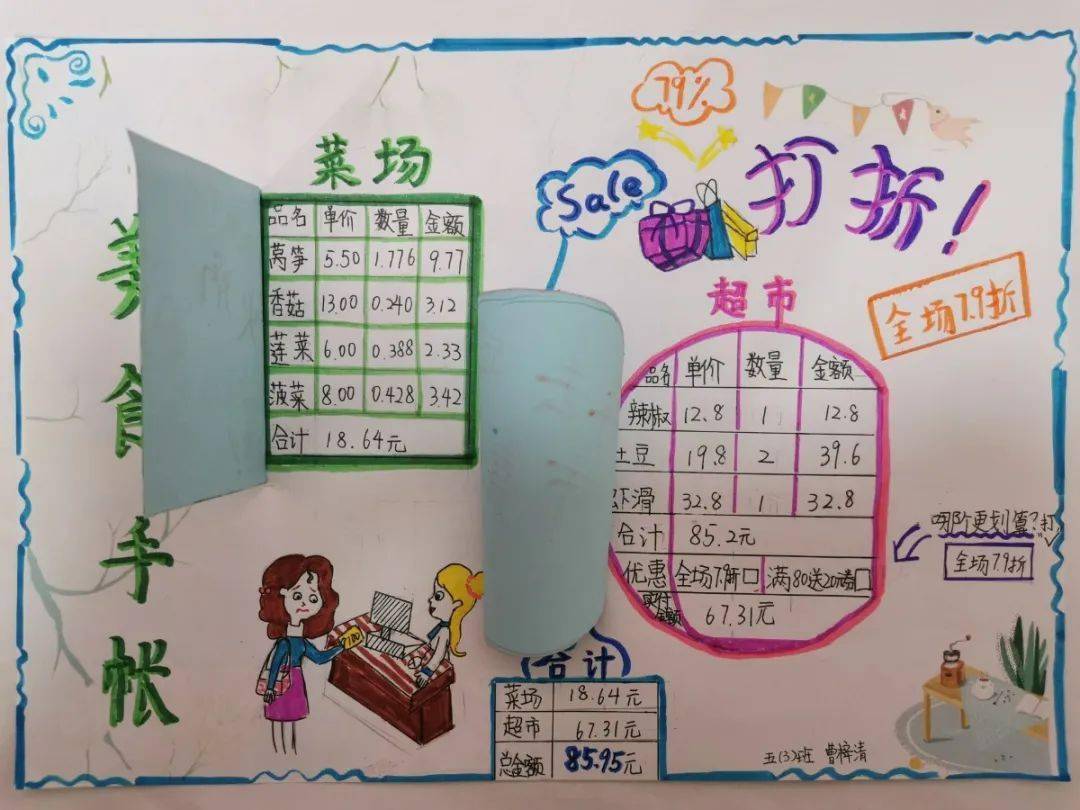 美食手帐
菜场
品名 单价 数量 金额
莴笋 5.50 1.776 9.77
香菇 13.00 0.240 3.12
莲菜 6.00 0.388 2.33
菠菜 8.00 0.428 3.42
合计 18.64元
79%
Sale
打折!
全场7.9折
超市
品名 单价 数量 金额
辣椒 12.8 1 12.8
土豆 19.8 2 39.6
虾滑 32.8 1 32.8
合计 85.2元
优惠 全场7.9折□ 满80送20 □
实付金额 67.31元
哪个更划算?打√
全场7.9折
100
合计
菜场 18.64元
超市 67.31元
总金额 85.95元
五(3)班 曹梓清